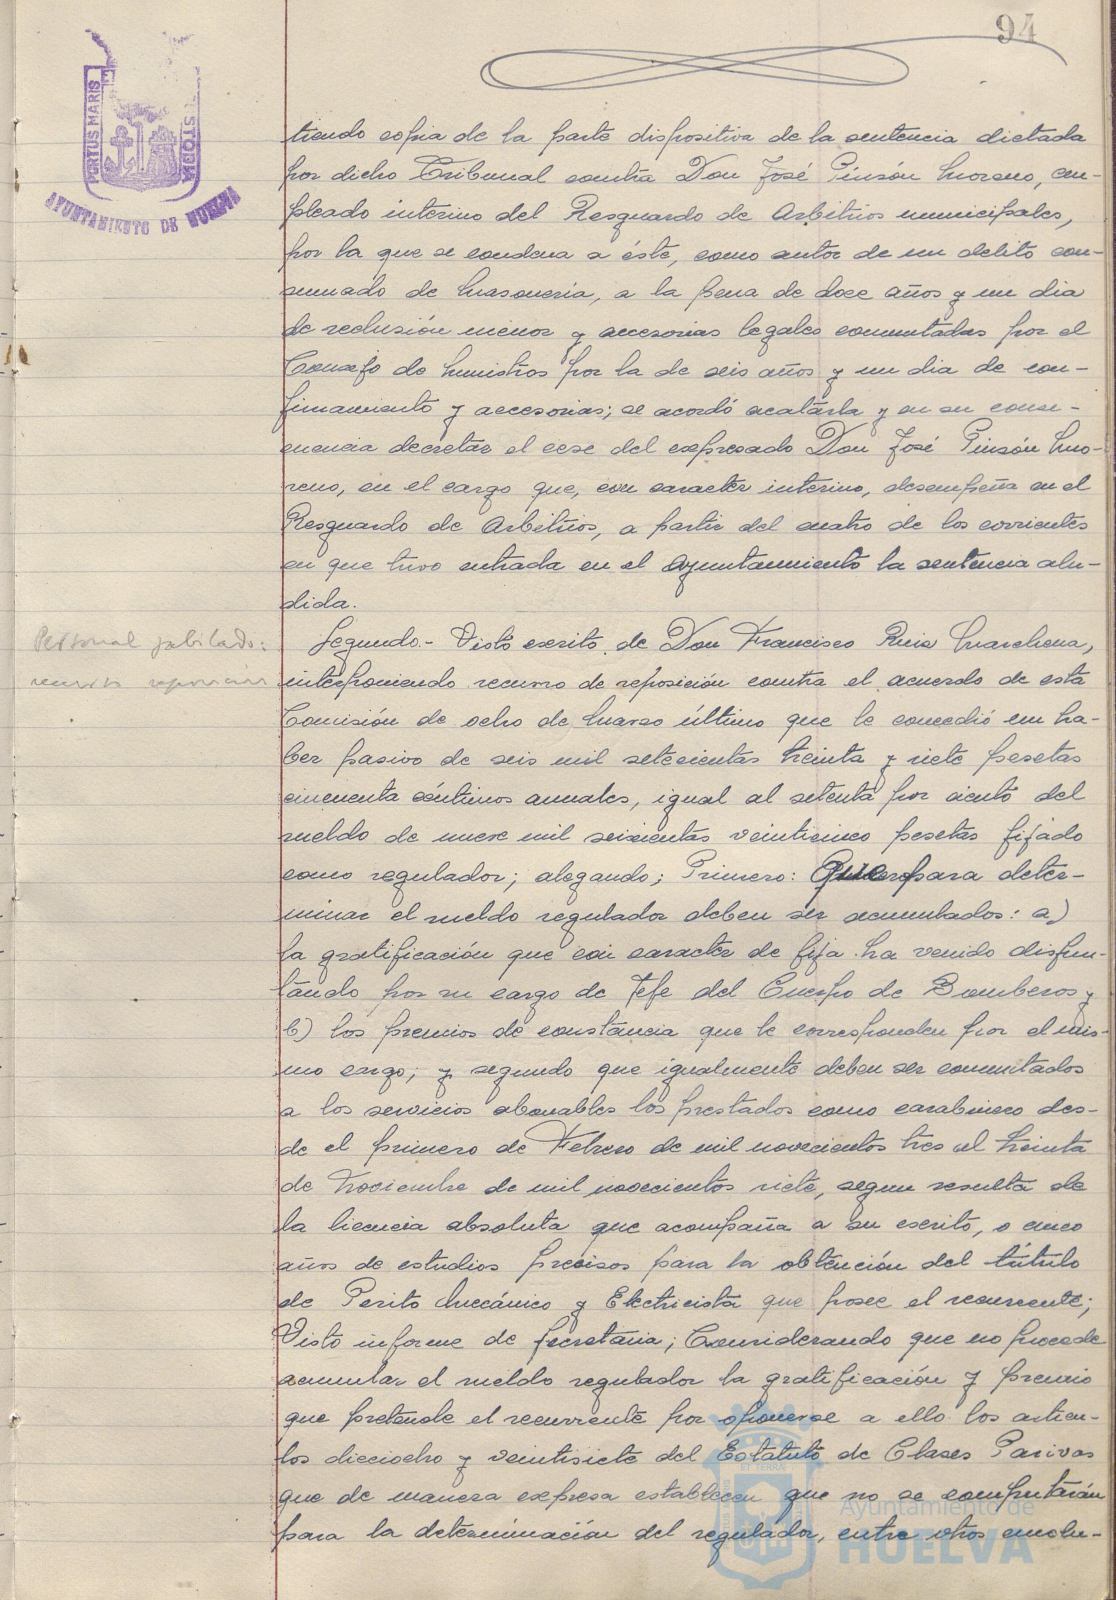 94
PORTUS MARIS
AYUNTAMIENTO DE HUELVA
tiendo copia de la parte dispositiva de la sentencia dictada
por dicho Tribunal contra Don José Pinzón Moreno, em-
pleado interino del Resguardo de Arbitrios municipales,
por la que se condena a éste, como autor de un delito con-
sumado de Masonería, a la pena de doce años y un dia
de reclusión menor y accesorias legales conmutadas por el
Consejo de Ministros por la de seis años y un dia de con-
finamiento y accesorias; se acordó acatarla y en su conse-
cuencia decretar el cese del expresado Don José Pinzón Mo-
reno, en el cargo que, con caracter interino, desempeña en el
Resguardo de Arbitrios, a partir del cuatro de los corrientes
en que tuvo entrada en el Ayuntamiento la sentencia alu-
dida.
Personal jubilado:
recurso reposición
Segundo.- Visto escrito de Don Francisco Ruiz Marchena,
interponiendo recurso de reposición contra el acuerdo de esta
Comisión de ocho de Marzo último que le concedió un ha-
ber pasivo de seis mil setecientas treinta y siete pesetas
cincuenta céntimos anuales, igual al setenta por ciento del
sueldo de nueve mil seiscientas veinticinco pesetas fijado
como regulador; alegando; Primero: Que para deter-
minar el sueldo regulador deben ser acumulados: a)
la gratificación que con caracter de fija ha venido disfru-
tando por su cargo de Jefe del Cuerpo de Bomberos y
b) los premios de constancia que le corresponden por el mis-
mo cargo; y segundo que igualmente deben ser conmutados
a los servicios abonables los prestados como carabinero des-
de el primero de Febrero de mil novecientos tres al treinta
de Noviembre de mil novecientos siete, segun resulta de
la licencia absoluta que acompaña a su escrito, o cinco
años de estudios precisos para la obtención del título
de Perito Mecánico y Electricista que posee el recurrente;
Visto informe de Secretaria; Considerando que no procede
acumular el sueldo regulador la gratificación y premio
que pretende el recurrente por oponerse a ello los articu-
los dieciocho y veintisiete del Estatuto de Clases Pasivas
que de manera expresa establecen que no se computarán
para la determinación del regulador, entre otros emolu-
Ayuntamiento de
HUELVA